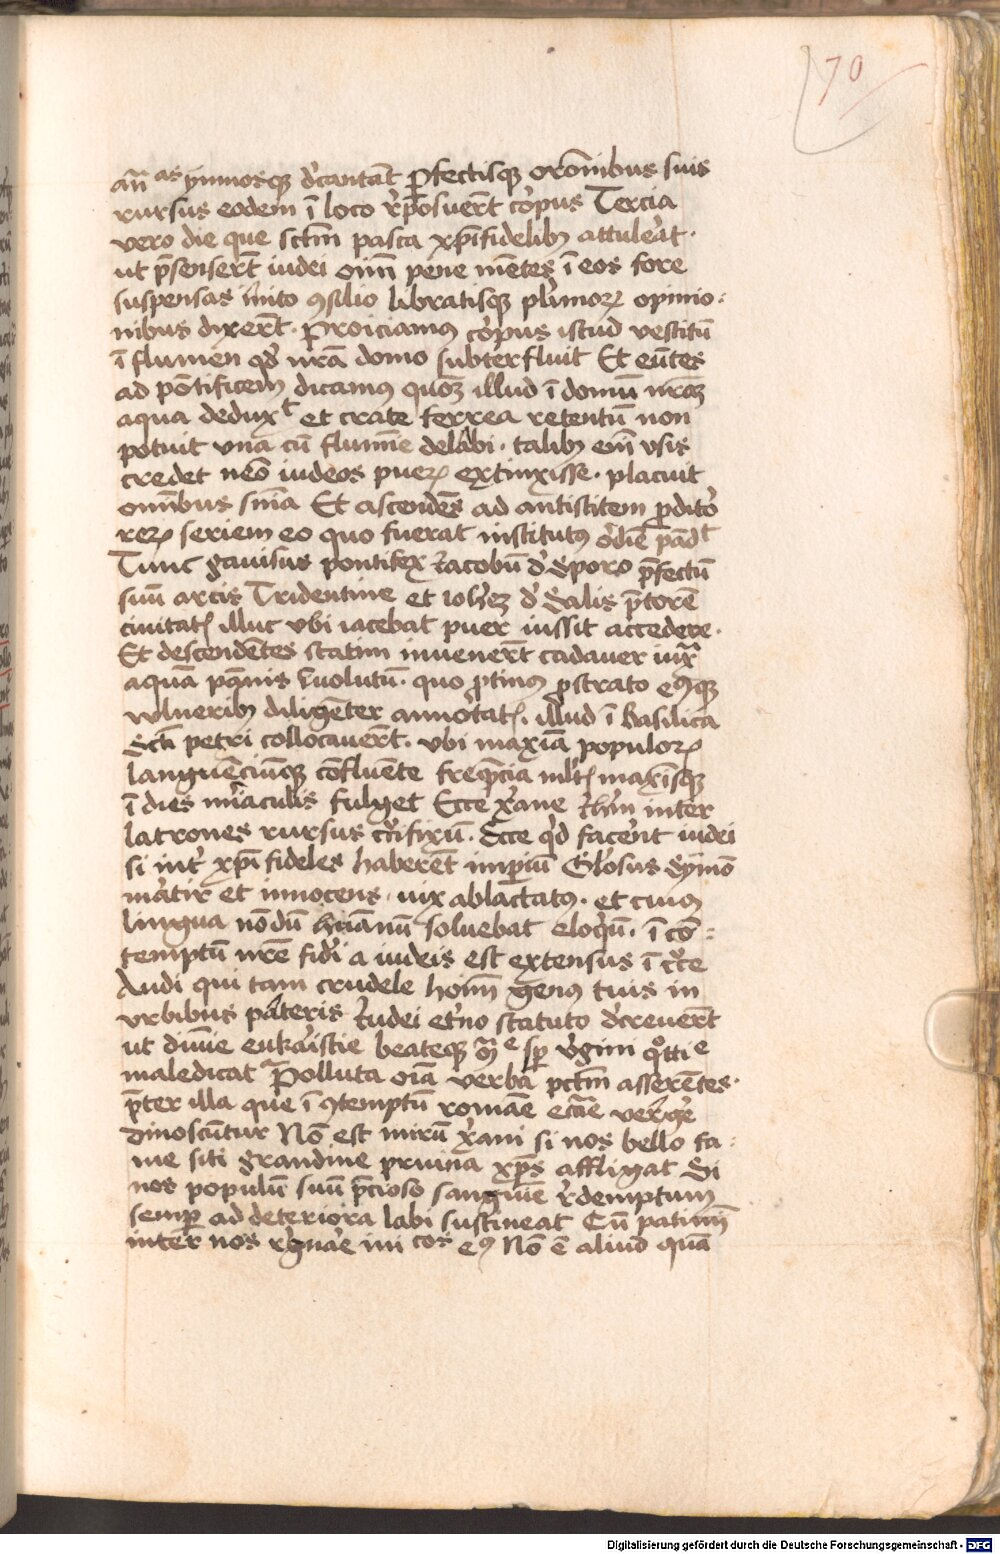 70
an̄ as ymnosqꝫ dͤcantāt ꝑfectisqꝫ orōnibus suis
rursus eodem ī loco rͤposuerūt cor̄pus Tercia
vero die que sctm̄ pasca xp̄ifidelibꝫ attulerat.
ut p̄senserūt iudei oīm̄ pene mētes ī eos fore
suspensas inito ꝯsilio libratisqꝫ plimorꝝ opinio:
nibus dixerūt. Proiciamꝰ corpus istud vestitū
ī flumen qd̓ nrā domo subterfluit Et eūtes
ad pōtificem dicamꝰ quoꝫ illud ī domū nrāꝫ
aqua deduxᵗ et crate ferrea retentū non
potuit vna cū flumīe delabi. talibꝫ em̄ vsis
credet neō iudeos puerꝝ extinxisse. placuit
omībus snīa Et ascendēs ad antistitem ꝑdito
rerꝝ seriem eo quo fuerat institutꝰ ordīe pādᵗ
Tunc gauisus pontifex Iacobū dͤ Sporo p̄fectū
suū arcis Tridentine et ioh̄eꝫ dͤ Salis p̄torē
ciuitatꝭ illuc vbi iacebat puer iussit accedere.
Et descendētes statim inuenerūt cadauer iuxͣ
aquā pānis īuolutū. quo ꝓtinꝰ ꝓstrato eiꝰqꝫ
vulneribꝫ diligēter annotatꝭ. illud ī basilica
Scti petri collocauerūt. vbi maxīa populorꝝ
languēciūqꝫ cōfluente freqūcia mltꝭ maxīsqꝫ
ī dies mīaculis fulget Ecce xͬane ihm̄ inter
latrones rursus crͥifixū. Ecce qͥd facerēt iudei
si intͬ xp̄ifideles haberēt imperiū Gl̓osus Symō
mātir et innocens. uix ablactatꝰ. et cuiꝰ
lingua nōdū humānū soluebat eloqͥū. ī cō:
temptū nrē fidei a iudeis est extensus ī crͨce
Audi qui tam crudele homī genꝰ tuis in
vrbibus pateris Iudei etͬno statuto dͤcreuerūt
ut diuīe eukaristie beateqꝫ Mͣᵉ sꝑ vͥgini qͦttiᵉ
maledicat Polluta oīa verba pctm̄ asserētes.
p̄ter illa que ī ꝯtemptū romāe ecc̄e vergeͬe
dinoscūtur Nō est mirū xͬani si nos bello fa:
me siti grandine pruina xp̄s affligat Si
nos populū suū p̄cioso sanguīe rͤdemptum
semꝑ ad deteriora labi sustīneat Cū patimͬ
inter nos rͤgnāe inī cos eꝰ Nō ē aliud quā
Digitalisierung gefördert durch die Deutsche Forschungsgemeinschaft - DFG